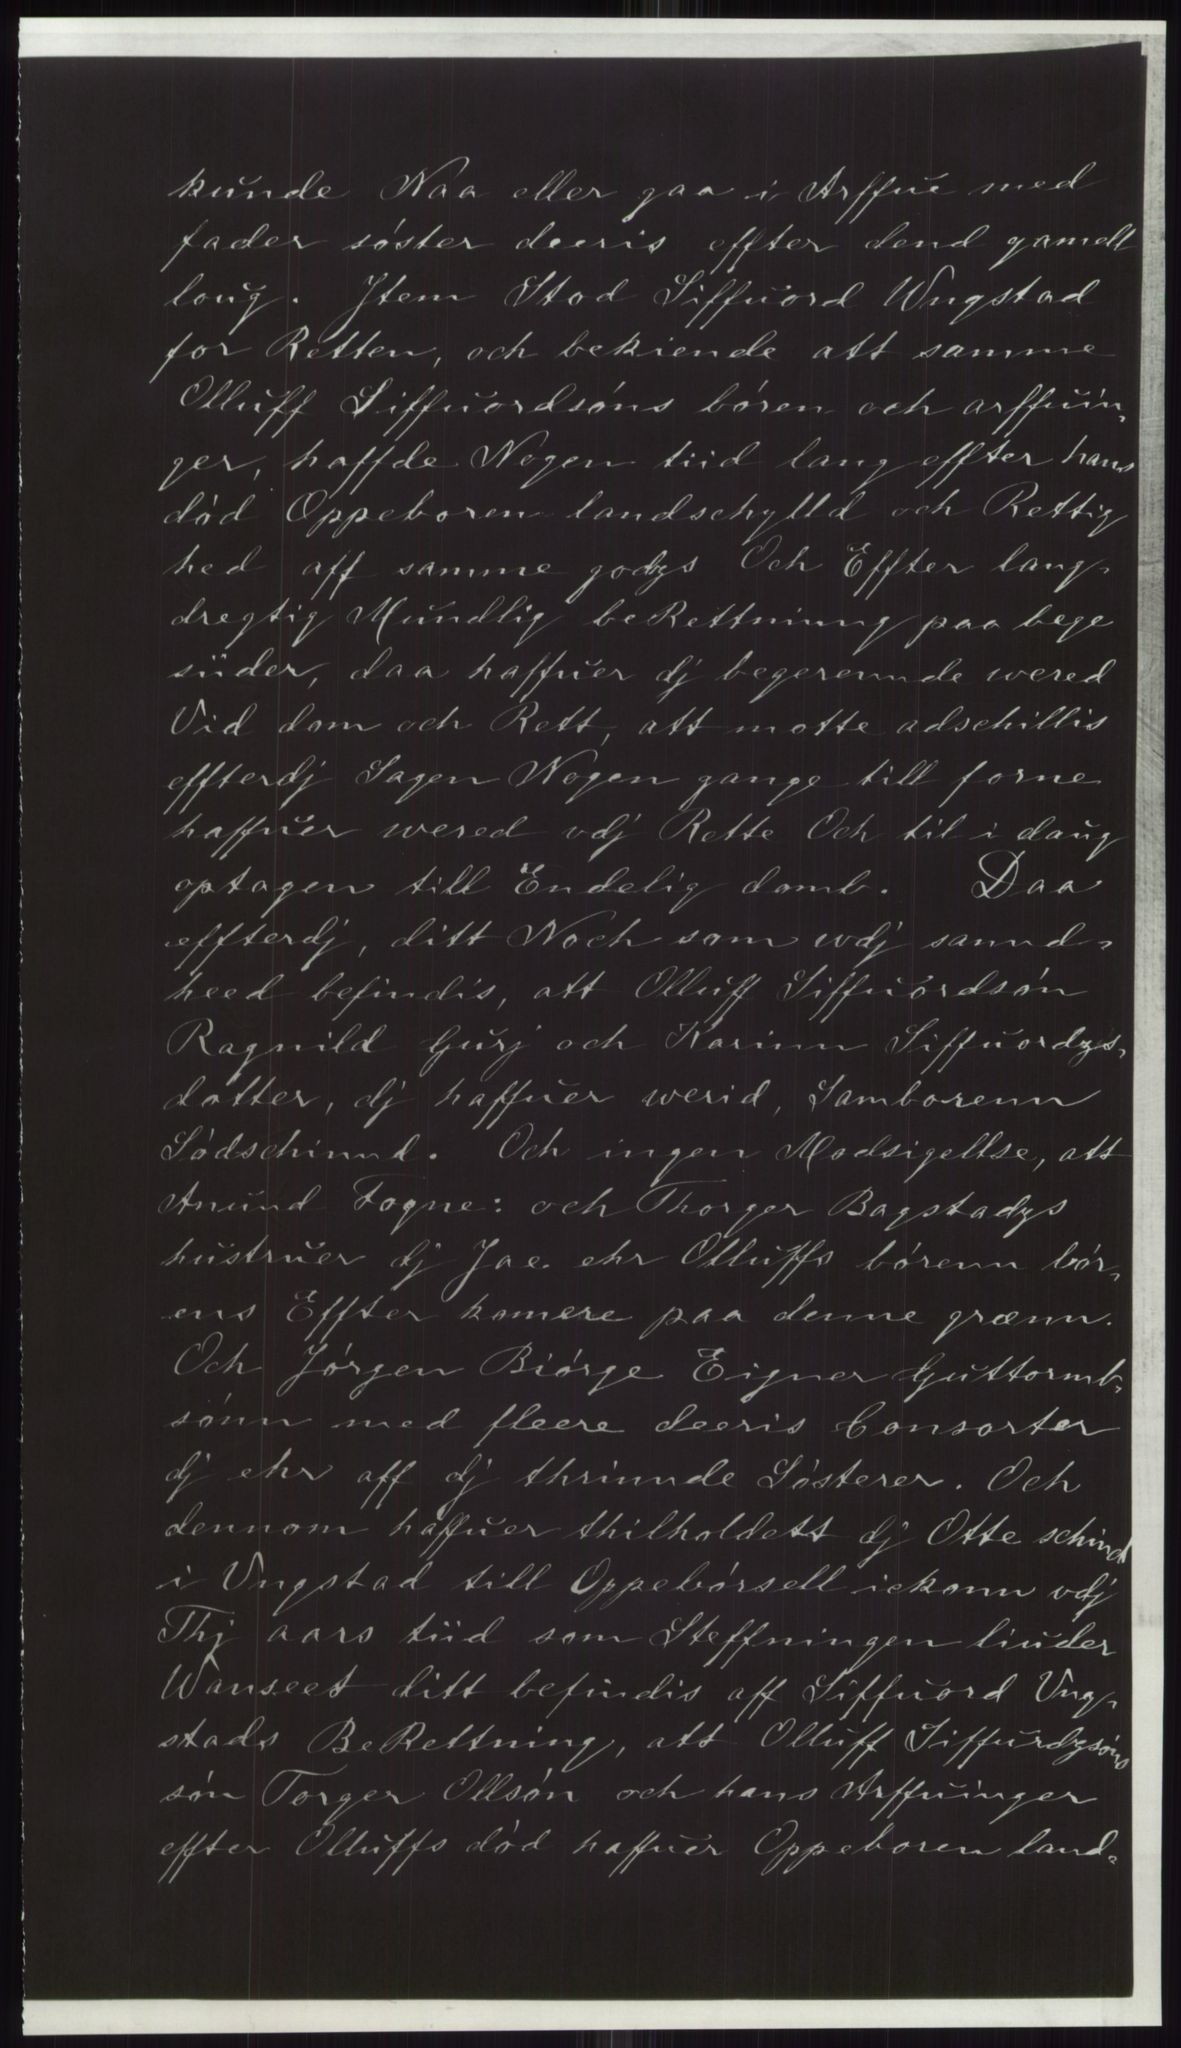 kunde Naa eller gaa i Arffue med
fader søster deeris effter dend gamell
loug. Jtem Stod Siffuord Wngstad
for Retten, och bekiende att samme
Olluff Siffuordsøns børen och arffuin,
ger, haffde Nogen tiid lang effter hans
død Oppeboren landschylld och Rettig
hed aff samme godzs Och Effter lang,
dregtig Mundlig beRettninng paa bege
siider, daa haffuer dj begerennde wered
Vid dom och Rett, att motte adschillis
effterdj Sagen Nogen gange till forne
haffuer wered vdj Rette Och til i daug
optagen till Endelig domb. Daa
effterdj, ditt Noch som wdj sannd,
heed befindis, att Olluff Siffuordsøn
Ragnild Gurj och Karinn Siffuordzs,
dotter, dj haffuer werid, Samborenn
Sødschinnd. Och ingen Modsigellse, att
Anund Fogne: och Thorger Bagstadzs
hustruer dj Jae. ehr Olluffs børenn bør,
ens Effter komere paa denne grænn.
Och Jørgen Biørge Eigner Guttormb,
sønn med fleere deeris Consorter
dj ehr aff dj thrinnde Søsterer. Och
dennom haffuer thilholdett dj Otte schind
i Vngstad till Oppebørsell ickonn vdj
Thj aars tiid som Steffningen liuder
Wanseet ditt befindis aff Siffuord Vng,
stads BeRettning, att Olluff Siffurdzsøns
søn Torger Ollsøn och hans Arffuinger
effter Olluffs død haffuer Oppeboren land,